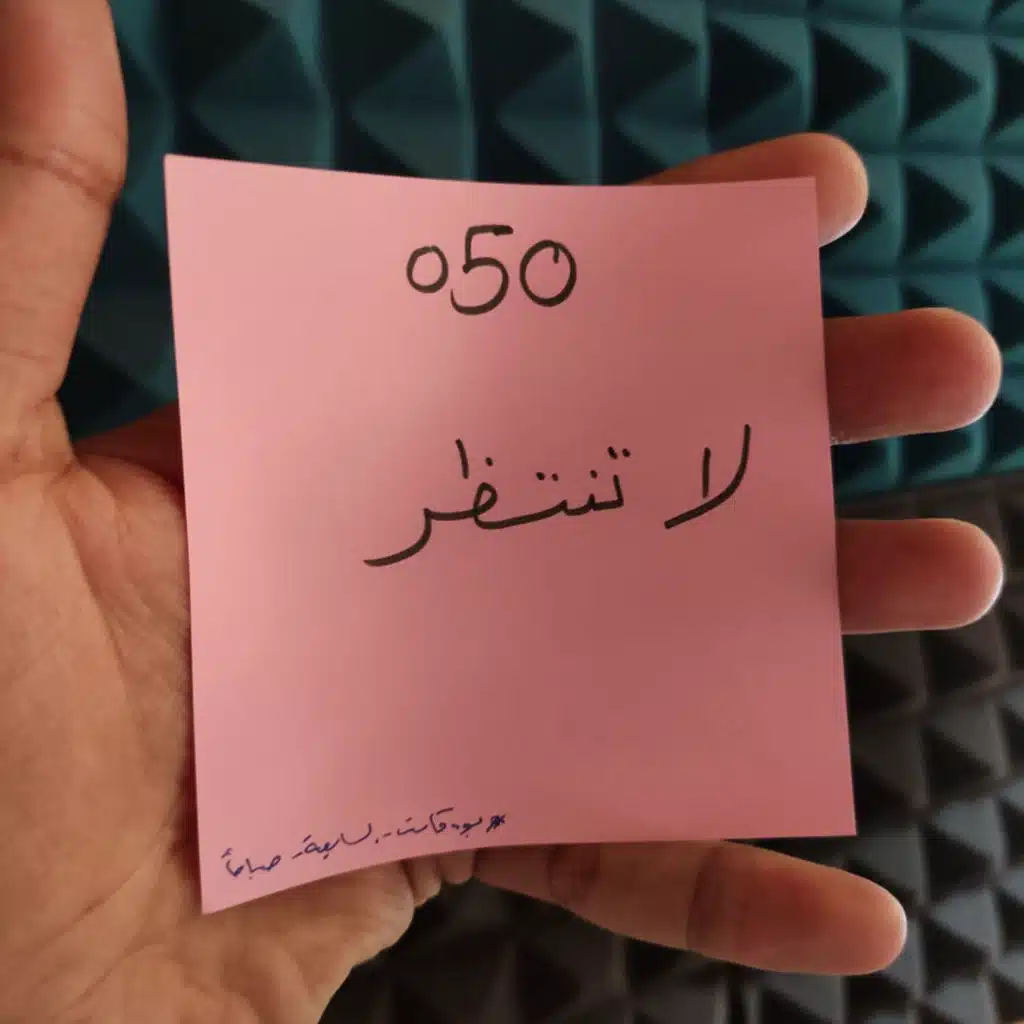 050
لا تنتظر
#بودقاست_السابعة_صباحاً